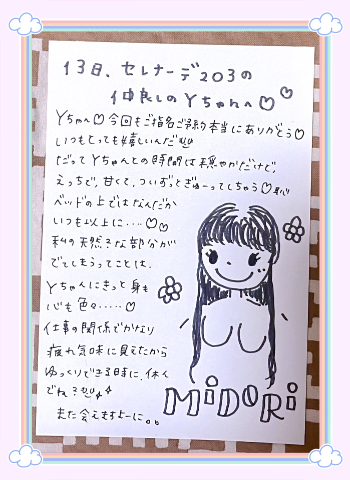 13日、セレナーデ203の
仲良しのYちゃんへ♡♡
Yちゃん♡今回もご指名ご予約本当にありがとう♡
いつもとっても嬉しいんだ
だってYちゃんとの時間は穏やかだけど、
えっちで、甘くて、ついずっとぎゅーってしちゃう♡
ベッドの上ではなんだか
いつも以上に・・・・♡♡
私の天然?な部分が
でてしまうってことは、
Yちゃんにきっと身も
心も色々・・・・・♡
仕事の関係でかなり
疲れ気味に見えたから
ゆっくりできる時に、休ん
でね?
また会えますよーに。。
MiDORi